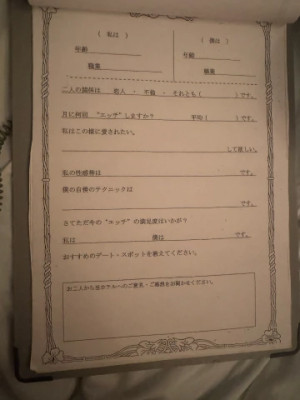 （ 私は ） （ 僕は ）
年齢 年齢
職業 職業
二人の関係は 恋人 ・ 不倫 ・ それとも（ ）です。
月に何回 “エッチ”しますか？ 平均（ ）です。
私はこの様に愛されたい。
して欲しい。
私の性感帯は です。
僕の自慢のテクニックは
です。
さてただ今の“エッチ”の満足度はいかが？
私は 僕は です。
おすすめのデート・スポットを教えてください。
お二人から当ホテルへのご意見・ご感想をお聞かせください。